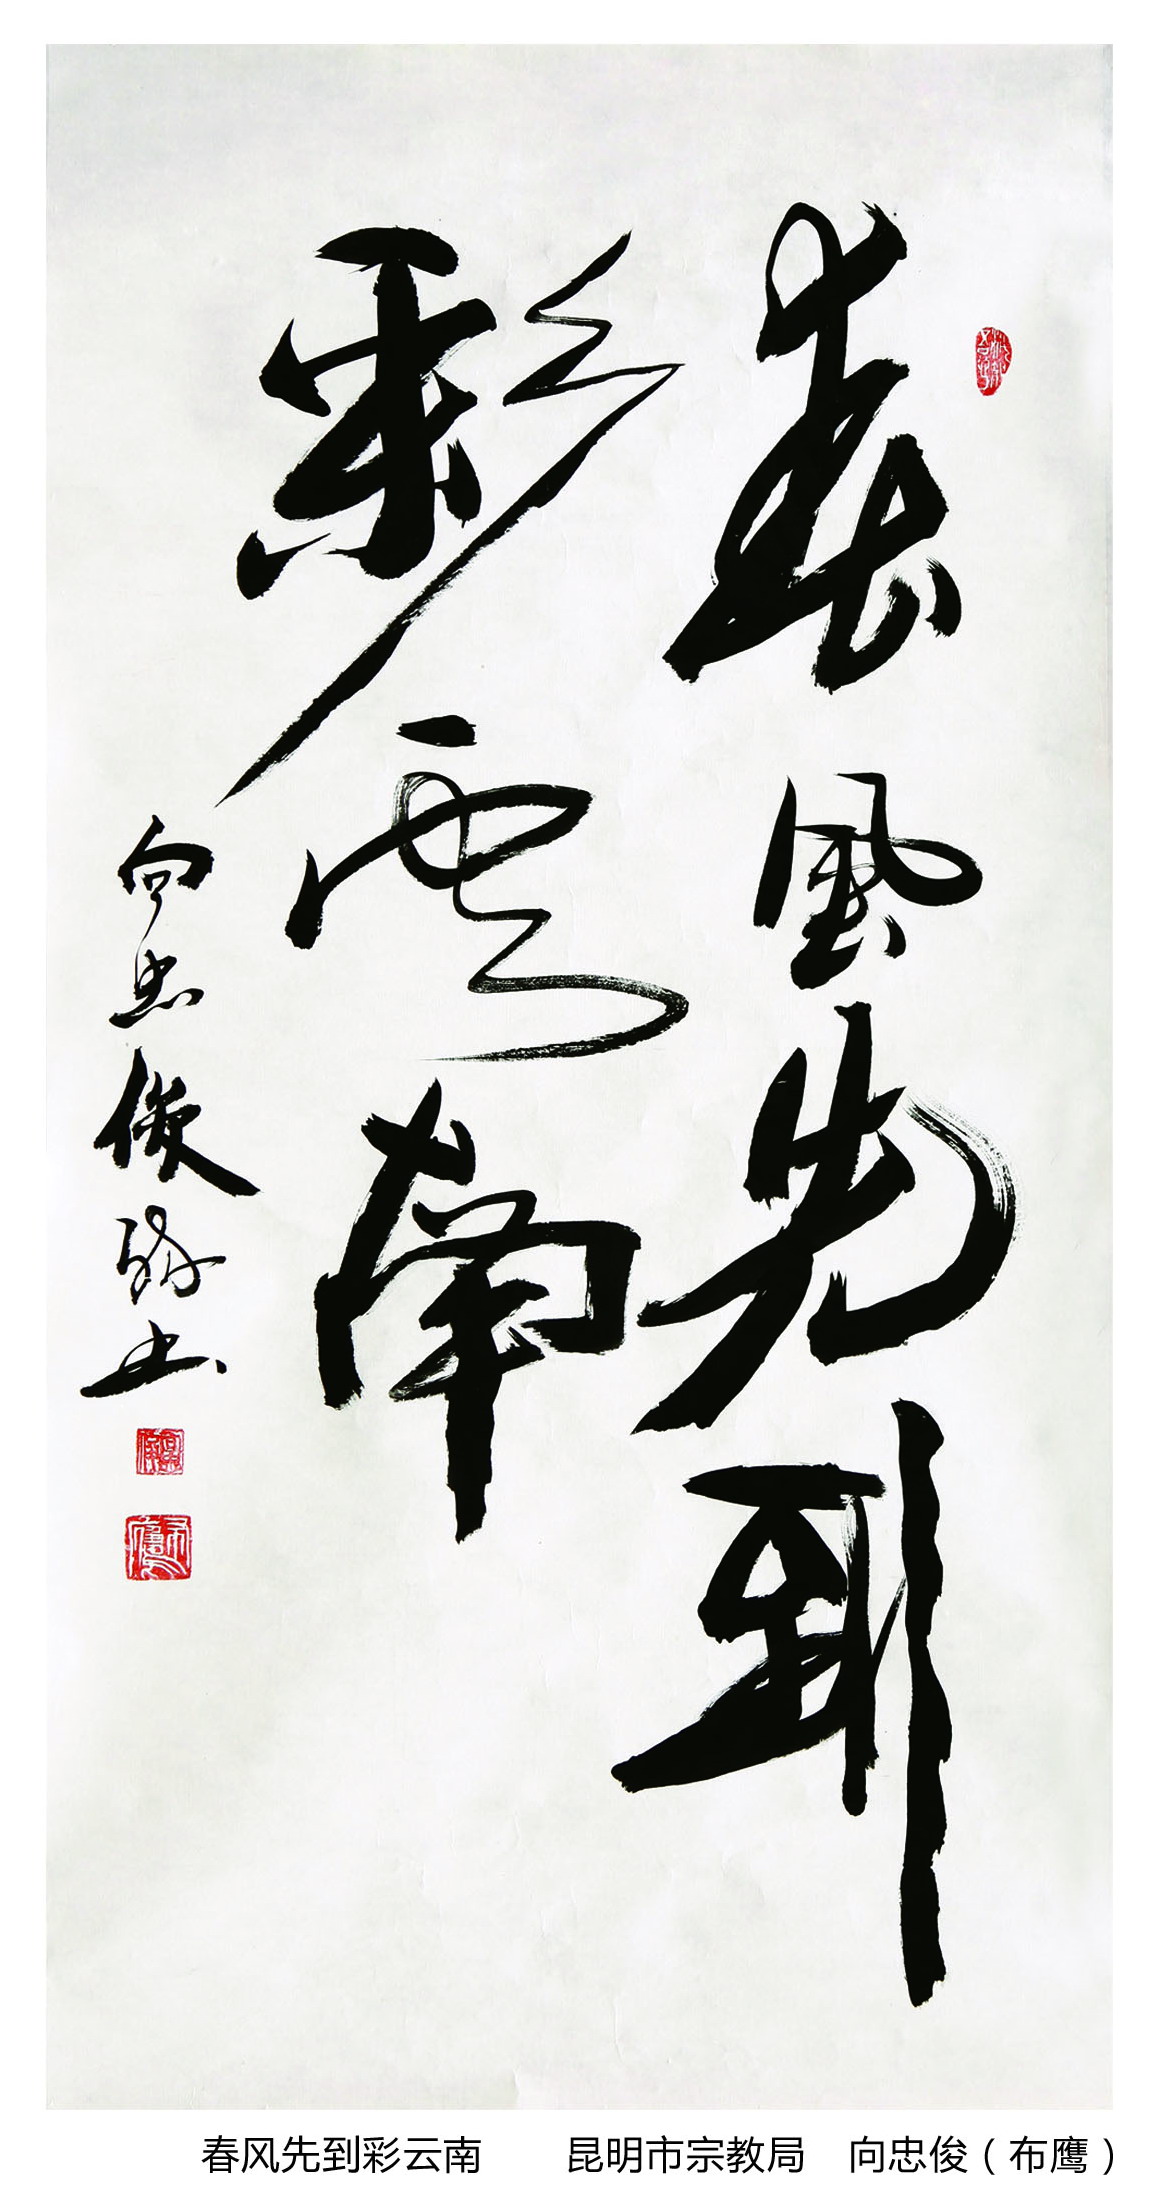 春風先到
彩雲南
向忠俊
书
春风先到彩云南 昆明市宗教局 向忠俊（布鹰）